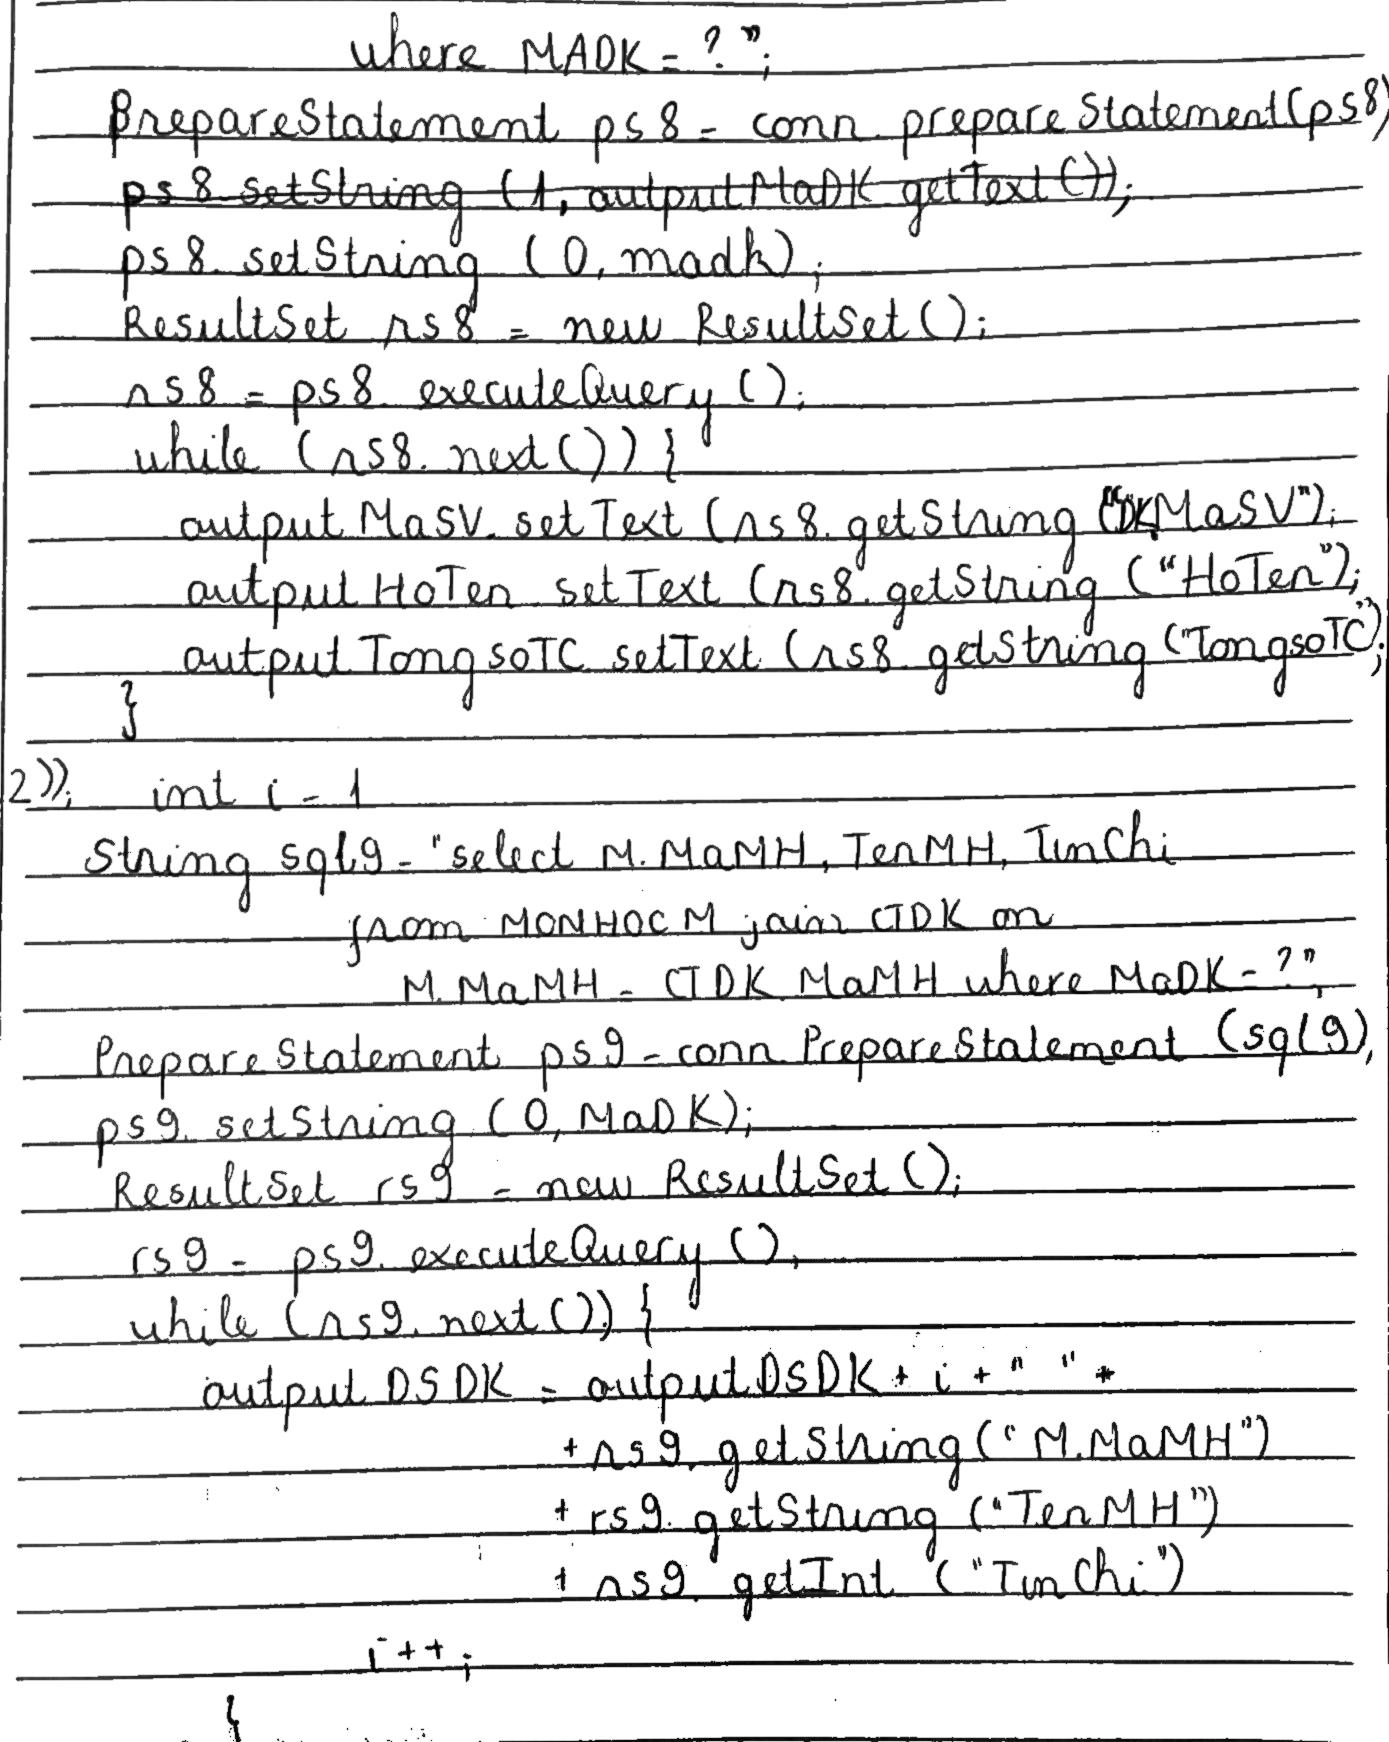 where MADK = ? ";
PrepareStatement ps8 = conn. prepareStatement(ps8)
ps8.setString (1, outputMaDK getText());
ps8. setString (0, madk);
ResultSet rs8 = new ResultSet();
rs8 = ps8. executeQuery ();
while (rs8. next()) {
outputMaSV. setText (rs8. getString ("DKMaSV");
outputHoTen setText (rs8. getString ("HoTen");
outputTongsoTC setText (rs8. getString ("TongsoTC");
}
2)); int i = 1
String sql9 = "select M. MaMH, TenMH, TinChi
from MONHOC M join CTDK on
M. MaMH = CTDK MaMH where MaDK = ?",
PrepareStatement ps9 = conn PrepareStatement (sql9),
ps9. setString (0, MaDK);
ResultSet rs9 = new ResultSet();
rs9 = ps9. executeQuery (),
while (rs9. next()) {
outputDSDK = outputDSDK + i + " " +
+ rs9. getString("M.MaMH")
+ rs9. getString ("TenMH")
+ rs9 getInt ("TinChi")
i++;
{